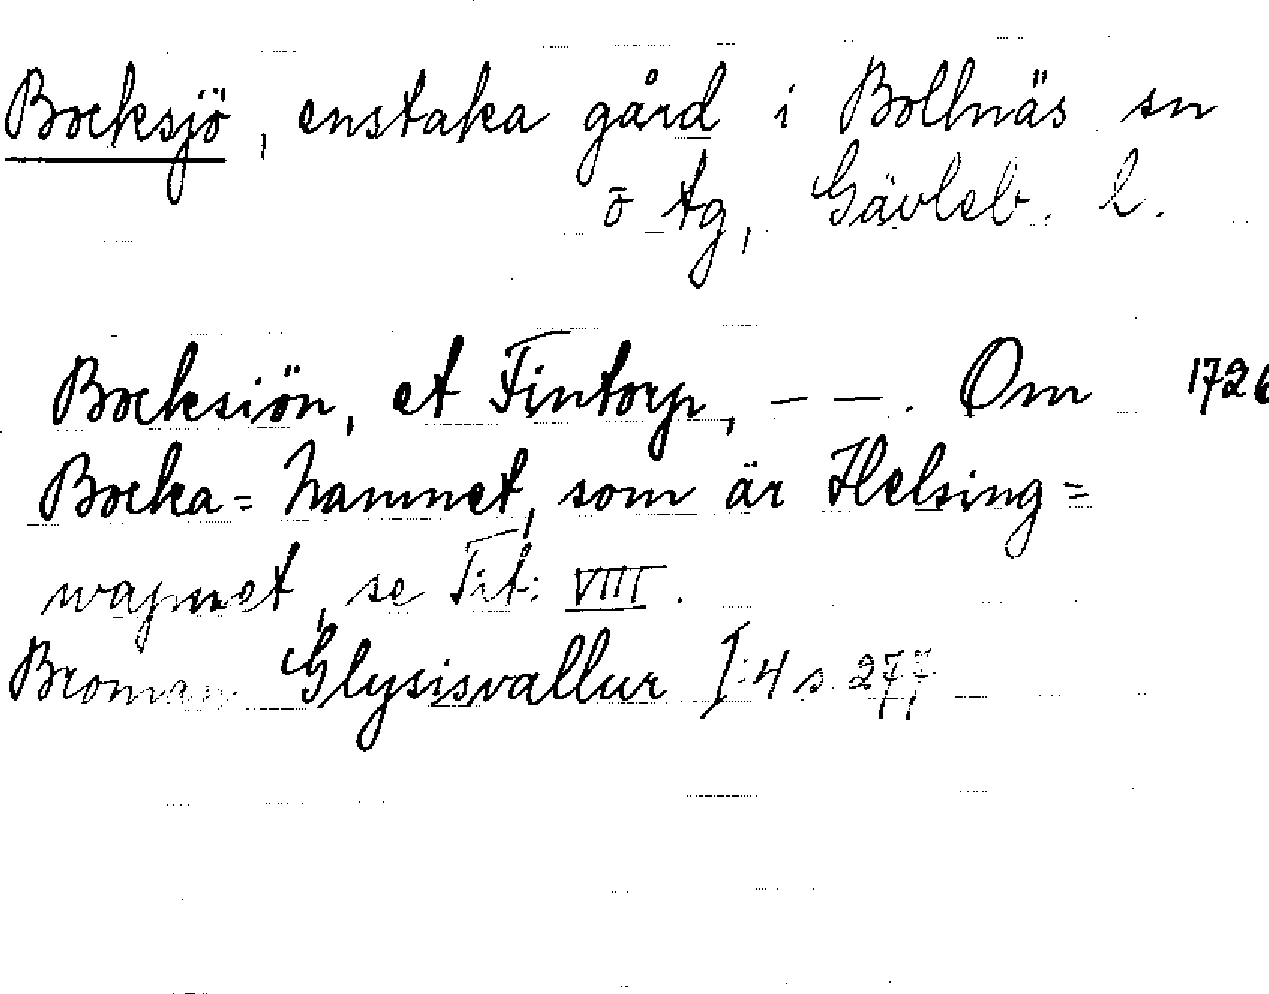 Bocksjö, enstaka gård i Bollnäs sn
ö tg, Gävleb. l.
Bocksiön, et Fintorp, – – . Om 1726
Bocka= Namnet, som är Helsing=
wapnet, se Tit: VIII.
Broman Glysisvallur I:4 s. 277